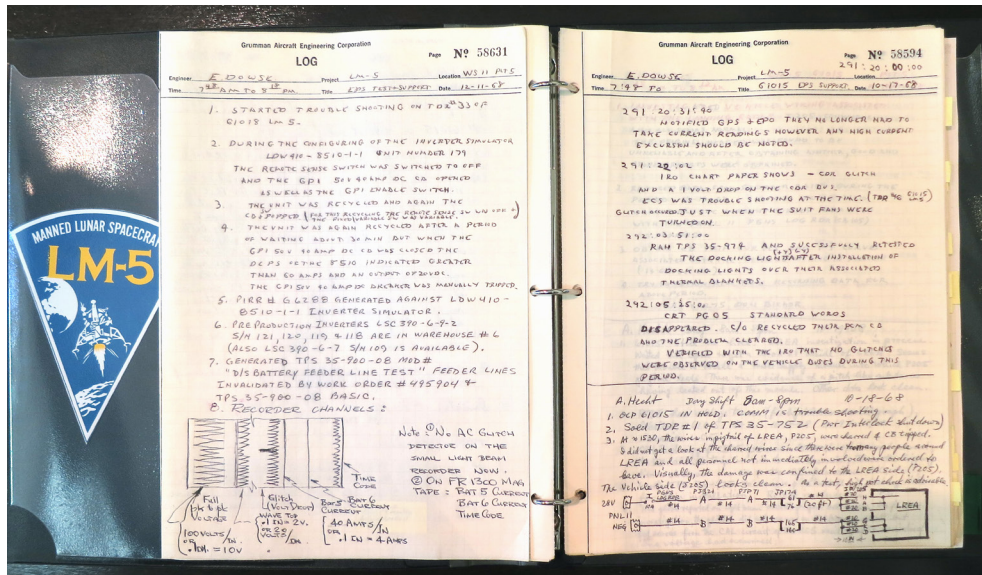 MANNED LUNAR SPACECRA
LM-5
Grumman Aircraft Engineering Corporation
LOG
Page Nº 58631
Engineer E. DOWSE Project LM-5 Location WS 11 PIT 5
Time 7 AM TO 8 PM Title EPS TEST SUPPORT Date 12-11-68
1. STARTED TROUBLE SHOOTING ON TDR #33 OF
61018 LM-5.
2. DURING THE CONFIGURING OF THE INVERTER SIMULATOR
LDW410-8510-1-1 UNIT NUMBER 179
THE REMOTE SENSE SWITCH WAS SWITCHED TO OFF
AND THE GPI 50V 40 AMP DC CB OPENED
AS WELL AS THE GPI ENABLE SWITCH.
3. THE UNIT WAS RECYCLED AND AGAIN THE
CB POPPED (FOR THIS RECYCLING THE REMOTE SENSE SW WAS OFF &
THE FIXED/VARIABLE SW IN VARIABLE.)
4. THE UNIT WAS AGAIN RECYCLED AFTER A PERIOD
OF WAITING ABOUT 30 MIN BUT WHEN THE
GPI 50V 40 AMP DC CB WAS CLOSED THE
DC PS OF THE 8510 INDICATED GREATER
THAN 60 AMPS AND AN OUTPUT OF 20VDC.
THE GPI 50V 40 AMP DC BREAKER WAS MANUALLY TRIPPED.
5. PIRR # G6288 GENERATED AGAINST LDW410-
8510-1-1 INVERTER SIMULATOR.
6. PRE PRODUCTION INVERTERS LSC 390-6-9-2
S/N 121, 120, 119 & 118 ARE IN WAREHOUSE #6
(ALSO LSC 390-6-7 S/N 109 IS AVAILABLE).
7. GENERATED TPS 35-900-08 MOD #
"D/S BATTERY FEEDER LINE TEST" FEEDER LINES
INVALIDATED BY WORK ORDER #495904 &
TPS 35-900-08 BASIC.
8. RECORDER CHANNELS:
Note: ① No AC GLITCH
DETECTOR ON THE
SMALL LIGHT BEAM
RECORDER NOW.
② ON FR 1300 MAG
TAPE: BAT 5 CURRENT
BAT 6 CURRENT
TIME CODE
TIME
CODE
Full
pk to pk
VOLTAGE
100 VOLTS/IN.
OR
.1 IN. = 10V
Glitch
(VOLT DROP)
WAVE TOP
.1 IN = 2V.
OR 20
VOLTS/IN.
BAT 6
CURRENT
40 AMPS/IN
OR
.1 IN = 4 AMPS
Grumman Aircraft Engineering Corporation
LOG
Page Nº 58594
291:20:00:00
Engineer E. DOWSE Project LM-5 Location
Time 7:48 TO Title 61015 EPS SUPPORT Date 10-17-68
291 20:31:40
NOTIFIED GPS & EPO THEY NO LONGER HAD TO
TAKE CURRENT READINGS HOWEVER ANY HIGH CURRENT
EXCURSION SHOULD BE NOTED.
291:22:02
IRO CHART PAPER SHOWS - CDR GLITCH
AND A 1 VOLT DROP ON THE CDR BUS.
ECS WAS TROUBLE SHOOTING AT THE TIME. (TDR #6 61015 LM-5)
GLITCH OCCURED JUST WHEN THE SUIT FANS WERE
TURNED ON.
292:03:51:00
RAN TPS 35-974 AND SUCCESSFULLY RETESTED
THE DOCKING LIGHT AFTER INSTALLATION OF
DOCKING LIGHTS OVER THEIR ASSOCIATED
THERMAL BLANKETS.
292:05:35:00
CRT PG 05 STANDARD WORDS
DISAPPEARED. C/O RECYCLED THEIR PCM CB
AND THE PROBLEM CLEARED.
VERIFIED WITH THE IRO THAT NO GLITCHES
WERE OBSERVED ON THE VEHICLE BUSES DURING THIS
PERIOD.
A. Hecht Day Shift 8am-8pm 10-18-68
1. OCP 61015 IN HOLD. COMM is trouble shooting
2. Sold TDR #1 of TPS 35-752 (Pwr Interlock shutdown)
3. At ≈1530, the wires in pigtail of LREA, P205, were charred & CB tripped.
I did not get a look at the charred wires since there were too many people around
LREA and all personnel not immediately involved were ordered to
leave. Visually, the damage was confined to the LREA side (P205).
The vehicle side (J205) looks clean. As a test, high pot check is advisable.
28V
PNL11
NEG
#14 A #14 A #4 (20 ft)
#14 B #14 B #14
LREA